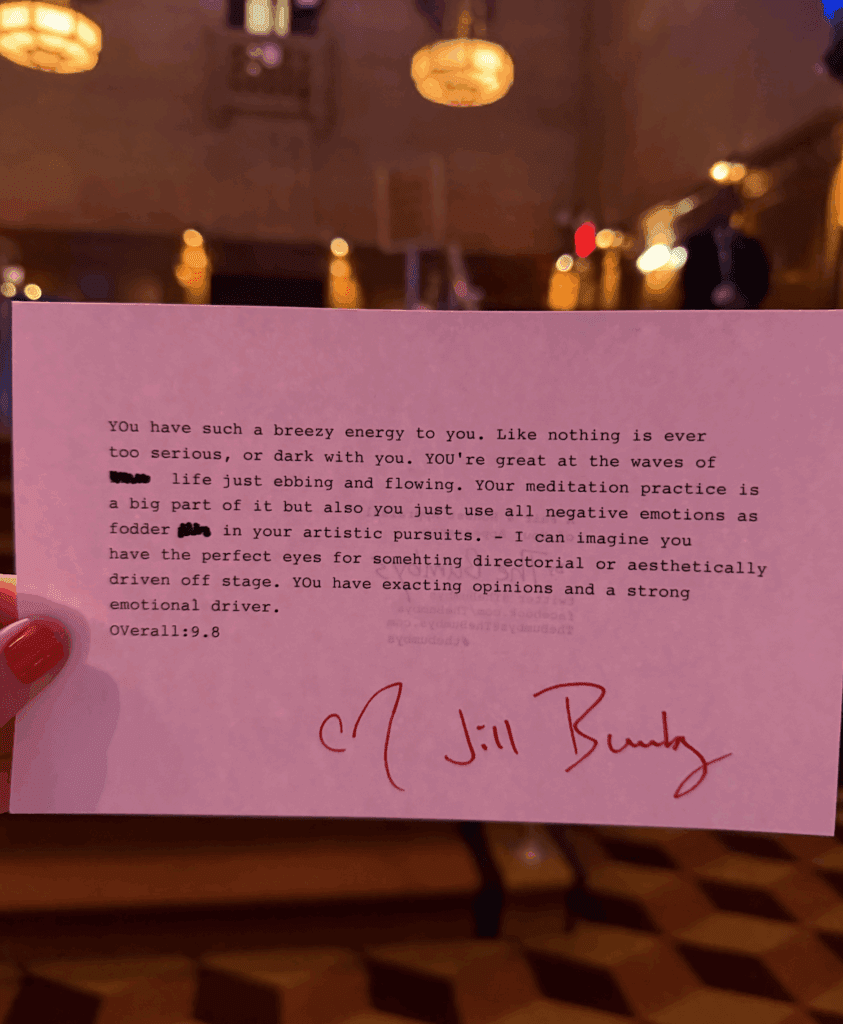 YOu have such a breezy energy to you. Like nothing is ever
too serious, or dark with you. YOU're great at the waves of
life just ebbing and flowing. YOur meditation practice is
a big part of it but also you just use all negative emotions as
fodder in your artistic pursuits. - I can imagine you
have the perfect eyes for somehting directorial or aesthetically
driven off stage. YOu have exacting opinions and a strong
emotional driver.
OVerall:9.8
Jill Bumby